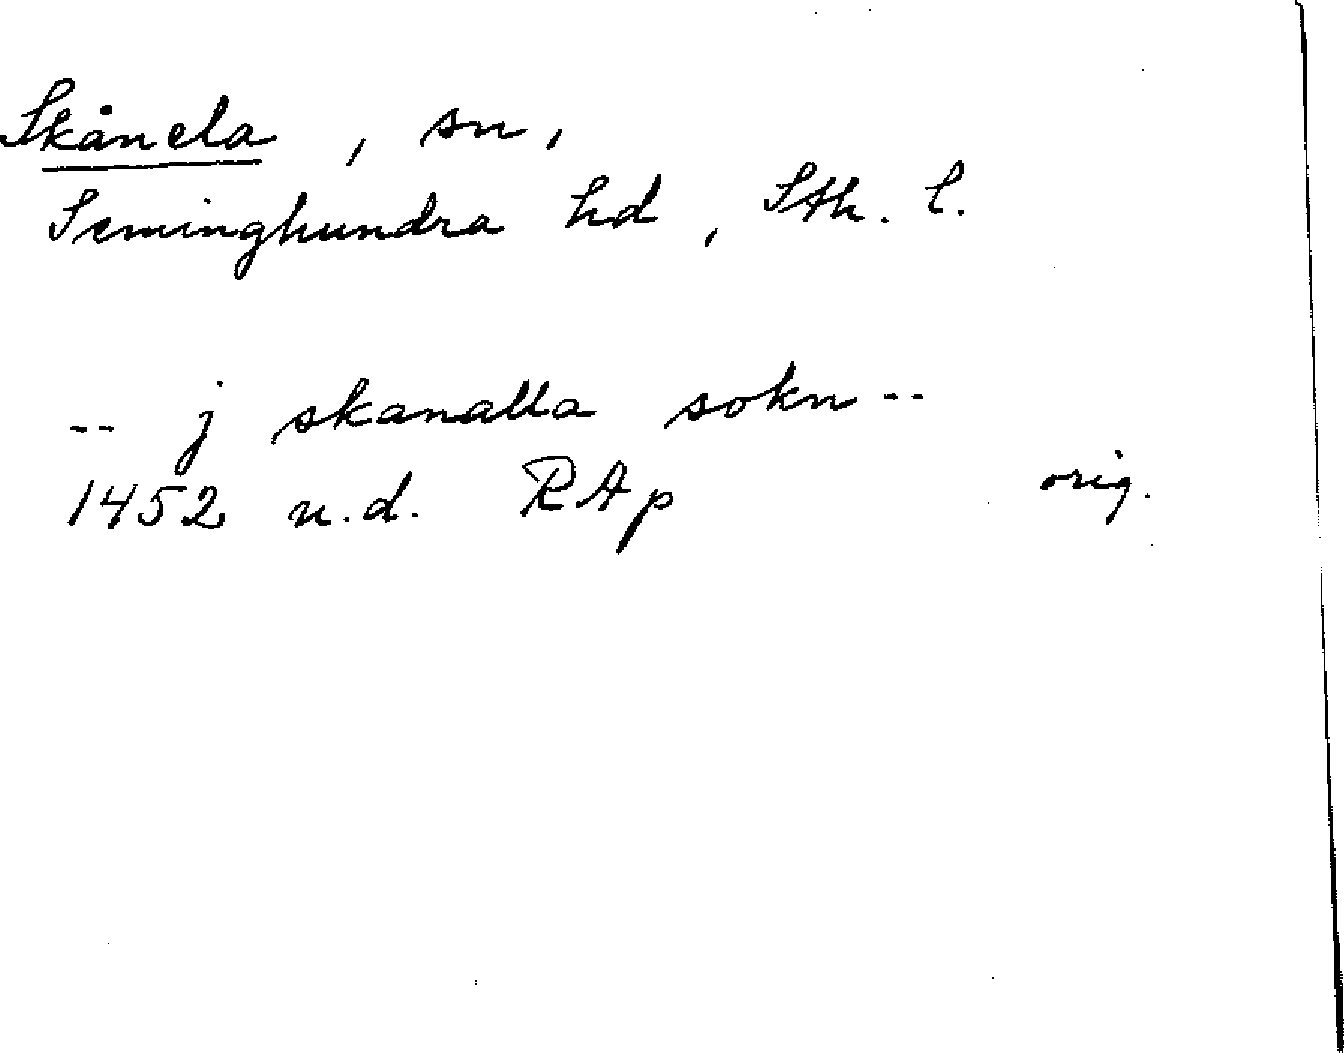 Skånela, sn,
Seminghundra hd, Sth. l.
-- j skanalla sokn --
1452 u.d. RAp orig.